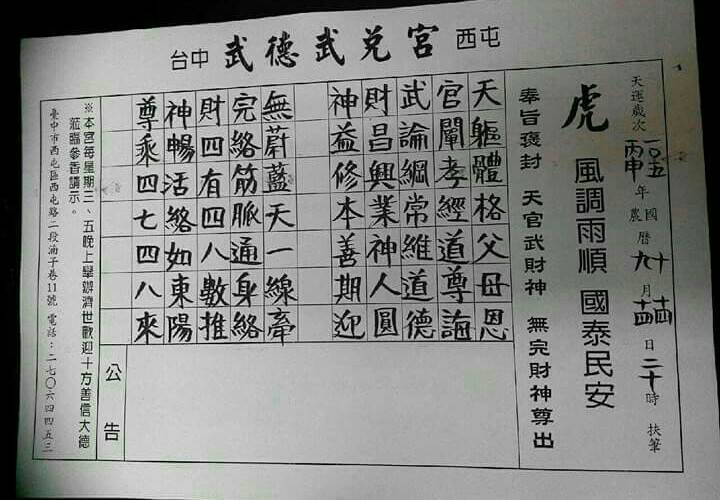 台中 武德武兌宮 西屯
天運歲次 一〇五 丙申 年 國曆 十 月 十四 日 二十 時 扶筆
農曆 九 月 十四
虎 風調雨順 國泰民安
奉旨褒封 天官武財神 無完財神尊出
天軀體格父母恩
官闡孝經道尊誨
武論綱常維道德
財昌興業神人圓
神益修本善期迎
無蔚藍天一線牽
完絡筋脈通身絡
財四有四八數推
神暢活絡如東陽
尊乘四七四八來
公告
※本宮每星期二、五晚上舉辦濟世歡迎十方善信大德
蒞臨參香請示。
臺中市西屯區西屯路二段湳子巷11號 電話：二七〇六四四五三